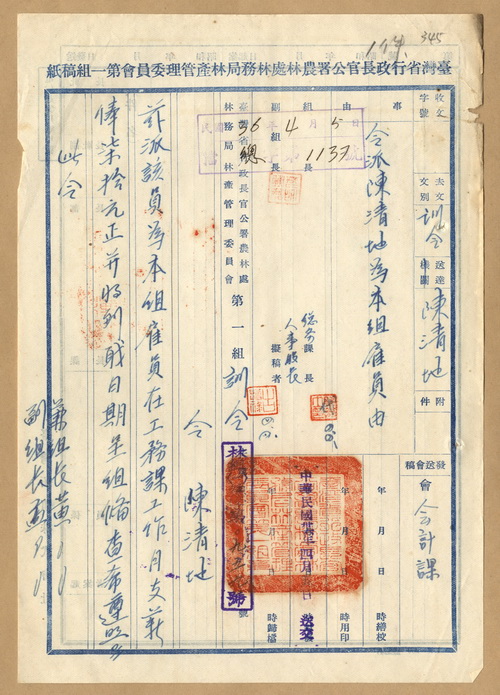 臺灣省行政長官公署農林處林務局林產管理委員會第一組稿紙
345
收文
字號
去文
文別
訓令
送達
機關
陳清地
附
件
事
由
令派陳清地為本組雇員由
發送會稿
會
會計課
年 月 日 時繕校
年 月 日 時用印
年 月 日 時歸檔
組
長
副
組
長
36 4月5日
1137
總務課長
人事股長
擬稿者
臺灣省行政長官公署農林處
林務局林產管理委員會
第一組訓令
中華民國 年四月 日
令 陳清地
茲派該員為本組雇員在工務課工作月支薪
俸柒拾元正并將到職日期呈組備查希遵照
此令
兼組長黃
副組長